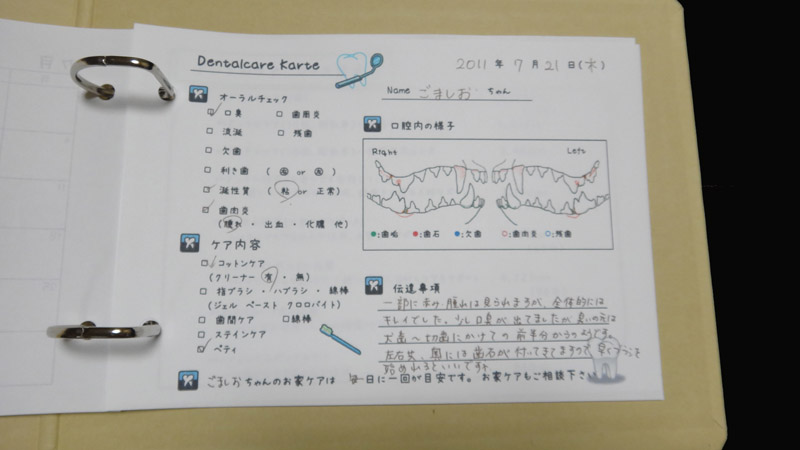 Dentalcare Karte
2011 年 7 月 21 日(木)
Name ごましお ちゃん
オーラルチェック
口臭 歯周炎
流涎 残歯
欠歯
利き歯 ( 右 or 左 )
涎性質 ( 粘 or 正常)
歯肉炎
(腫れ・出血・化膿 他)
ケア内容
コットンケア
(クリーナー 有・無)
指ブラシ・ハブラシ・綿棒
(ジェル ペースト クロロバイト)
歯間ケア 綿棒
ステインケア
ペティ
口腔内の様子
Right Left
:歯垢 :歯石 :欠歯 :歯肉炎 :残歯
伝達事項
一部に赤み 腫れは見られますが、全体的には
キレイでした。少し口臭が出てましたが 臭いの元は
犬歯〜切歯にかけての 前半分からのようです。
左右共、奥には 歯石が 付いてきてますので、早くブラシを
始めれるといいです。
ごましおちゃんのお家ケアは 毎日に一回が目安です。 お家ケアもご相談下さい